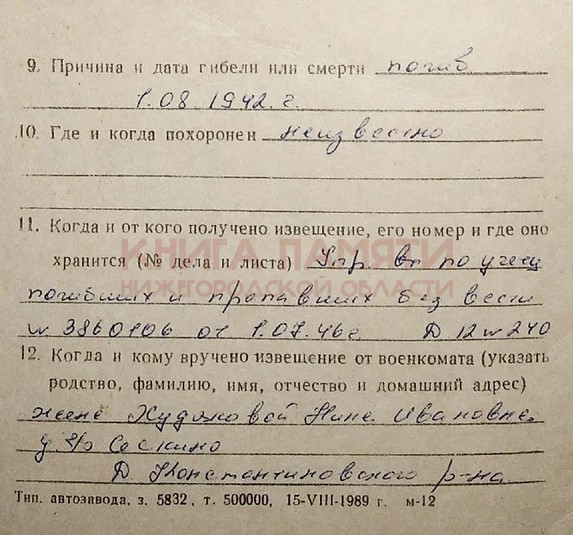 9. Причина и дата гибели или смерти погиб
1.08 1942. г.
10. Где и когда похоронен неизвестно
11. Когда и от кого получено извещение, его номер и где оно
хранится (№ дела и листа) Упр. вр по учету
погибших и пропавших без вести
№ 3860106 от 1.07.46 г Д 12 л 240
12. Когда и кому вручено извещение от военкомата (указать
родство, фамилию, имя, отчество и домашний адрес)
жене Худяковой Нине Ивановне,
д. Сескино
Д. Константиновского р-на.
Тип. автозавода, з. 5832, т. 500000, 15-VIII-1989 г. м-12
КНИГА ПАМЯТИ
НИЖЕГОРОДСКОЙ ОБЛАСТИ